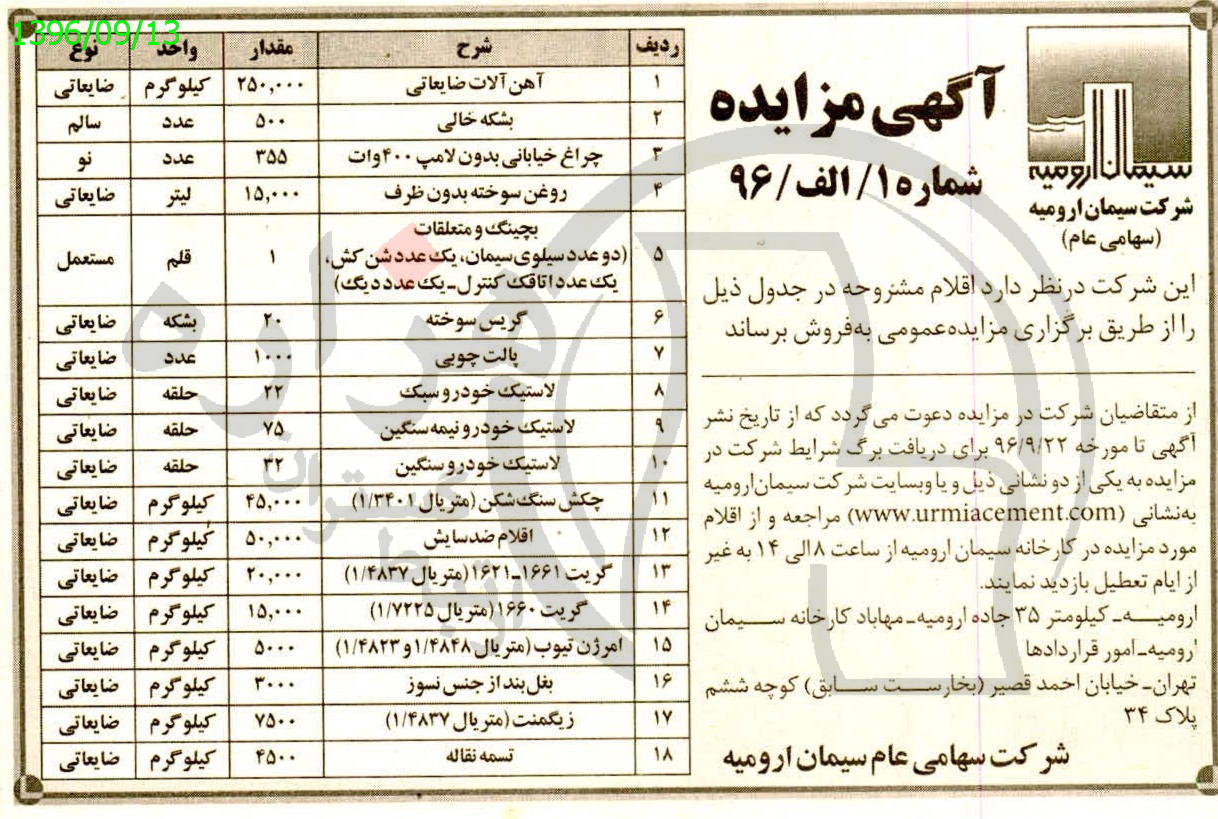 1396/09/13
سیمان ارومیه
شرکت سیمان ارومیه
(سهامی عام)
آگهی مزایده
شماره ۱/ الف/ ۹۶
این شرکت درنظر دارد اقلام مشروحه در جدول ذیل
را از طریق برگزاری مزایده عمومی به فروش برساند
از متقاضیان شرکت در مزایده دعوت می گردد که از تاریخ نشر
آگهی تا مورخه ۹۶/۹/۲۲ برای دریافت برگ شرایط شرکت در
مزایده به یکی از دو نشانی ذیل و یا وبسایت شرکت سیمان ارومیه
به نشانی (www.urmiacement.com) مراجعه و از اقلام
مورد مزایده در کارخانه سیمان ارومیه از ساعت ۸ الی ۱۴ به غیر
از ایام تعطیل بازدید نمایند.
ارومیـــه- کیلومتر ۳۵ جاده ارومیه- مهاباد کارخانه ســـیمان
ارومیه- امور قراردادها
تهران- خیابان احمد قصیر (بخارســت ســـابق) کوچه ششم
پلاک ۳۴
شرکت سهامی عام سیمان ارومیه
ردیف شرح مقدار واحد نوع
۱ آهن آلات ضایعاتی ۲۵۰,۰۰۰ کیلوگرم ضایعاتی
۲ بشکه خالی ۵۰۰ عدد سالم
۳ چراغ خیابانی بدون لامپ ۴۰۰ وات ۳۵۵ عدد نو
۴ روغن سوخته بدون ظرف ۱۵,۰۰۰ لیتر ضایعاتی
۵ بچینگ و متعلقات
(دو عدد سیلوی سیمان، یک عدد شن کش، ۱ قلم مستعمل
یک عدد اتاقک کنترل- یک عدد دیگ)
۶ گریس سوخته ۲۰ بشکه ضایعاتی
۷ پالت چوبی ۱۰۰۰ عدد ضایعاتی
۸ لاستیک خودرو سبک ۲۲ حلقه ضایعاتی
۹ لاستیک خودرو نیمه سنگین ۷۵ حلقه ضایعاتی
۱۰ لاستیک خودرو سنگین ۳۲ حلقه ضایعاتی
۱۱ چکش سنگ شکن (متریال ۱/۳۴۰۱) ۴۵,۰۰۰ کیلوگرم ضایعاتی
۱۲ اقلام ضدسایش ۵۰,۰۰۰ کیلوگرم ضایعاتی
۱۳ گریت ۱۶۶۱-۱۶۲۱ (متریال ۱/۴۸۳۷) ۲۰,۰۰۰ کیلوگرم ضایعاتی
۱۴ گریت ۱۶۶۰ (متریال ۱/۷۲۲۵) ۱۵,۰۰۰ کیلوگرم ضایعاتی
۱۵ امرژن تیوب (متریال ۱/۴۸۴۸ و ۱/۴۸۲۳) ۵۰۰۰ کیلوگرم ضایعاتی
۱۶ بغل بند از جنس نسوز ۳۰۰۰ کیلوگرم ضایعاتی
۱۷ زیگمنت (متریال ۱/۴۸۳۷) ۷۵۰۰ کیلوگرم ضایعاتی
۱۸ تسمه نقاله ۴۵۰۰ کیلوگرم ضایعاتی